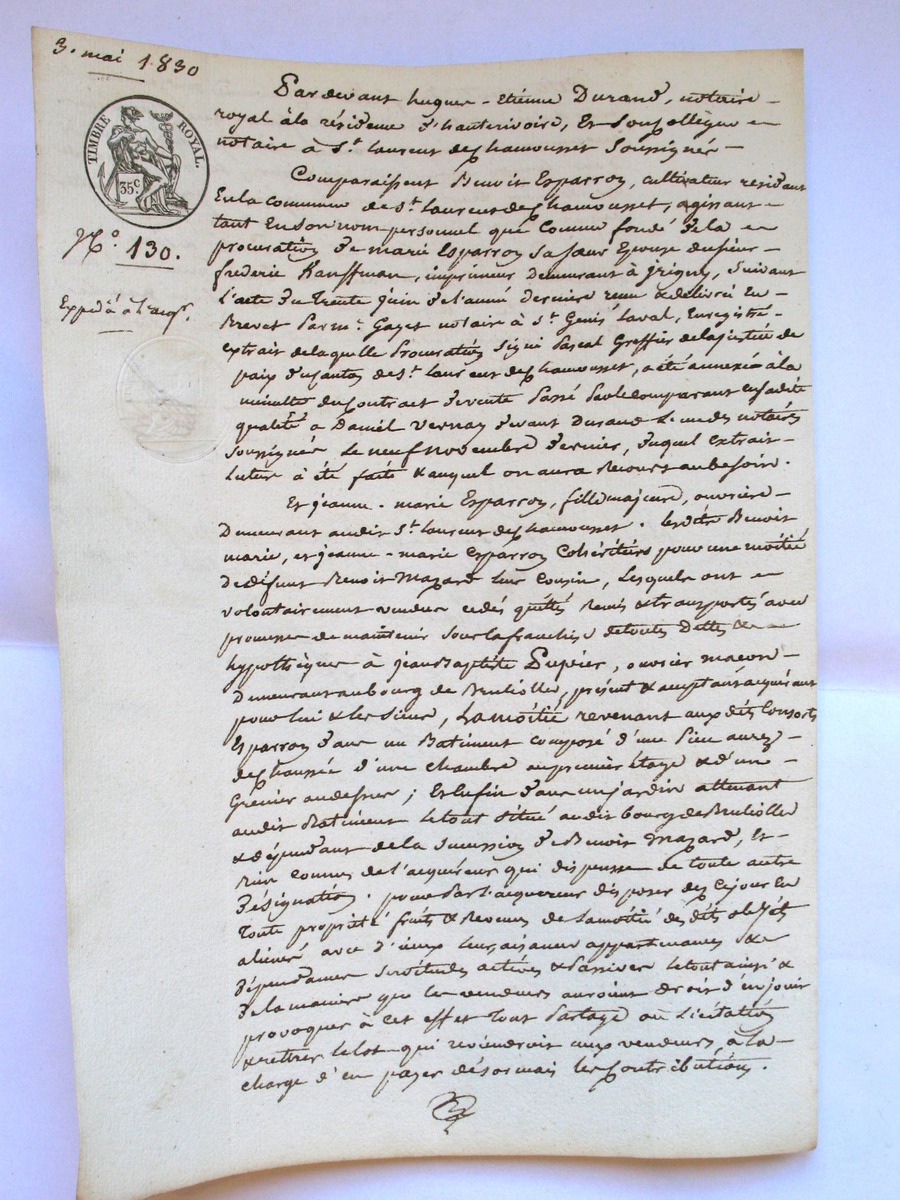 3. mai 1830
TIMBRE ROYAL.
35c.
N.o 130.
Expédié à l'acqr.
Pardevant hugues-Etiénne Durand, notaire
royal à la résidence d'hauterivoire, Et son collègue
notaire à St. Laurent de Chamousset soussignés
Comparaissent Benoit Esparron, cultivateur résidant
En la commune de St. Laurent de Chamousset, agissant
tant En son nom personnel que comme fondé de la
procuration de marie Esparron sa sœur Epouse du sieur
frederic Kauffman, imprimeur Demeurant à jrigny, suivant
l'acte du trente juin de l'année dernière reçu & délivré En
Brevet Par me. Gayet notaire à St. Genis Laval, Enregistré
extrait de laquelle Procuration signé Pascal Greffier de la justice de
paix du canton de St. Laurent de Chamousset, a été annexé à la
minutte du Contract de vente Passé Par le comparant en sadite
qualité à Daniel Vernay devant Durand l'un des notaires
soussignés le neuf novembre dernier, duquel extrait
Lecture à été faite & auquel on aura Recours au besoin.
Et jeanne-marie Esparron, fille majeure, ouvrière
Demeurant audit St. Laurent de Chamousset. lesdits Benoit
marie, et jeanne-marie Esparron Cohéritiers pour une moitié
de défunt Benoit Mazard leur Cousin, Lesquels ont
volontairement vendu cedés quittés Remis & transportés avec
promesse de maintenir sous la franchise de toutes Dettes &
hypothèques à jean Baptiste Pupier, ouvrier macon
Demeurant au bourg de Brullolles, présent & acceptant acquérant
pour lui & les siens, La moitié revenant aux dits Consorts
Esparron dans un Batiment composé d'une Pièce au rez
de Chaussée d'une chambre au premier étage & d'un
Grenier au dessus; Et Enfin dans un jardin attenant
audit Batiment le tout situé audit bourg de Brullolles
& dépendant de la succession de Benoit Mazard, Et
bien connus de l'acquéreur qui dispense de toute autre
désignation. pour Par l'acquereur disposer dès ce jour En
toute propriété fruits & Revenus de la moitié des dits objets
aliénés avec d'iceux leurs aisances appartenances &
dépendances servitudes actives & Passives le tout ainsi &
de la manière que les vendeurs auroient droit d'en jouir
provoquer à cet effet tout Partage ou Licitation
& retirer le lot qui reviendroit aux vendeurs, à la
charge d'en payer désormais les Contributions.